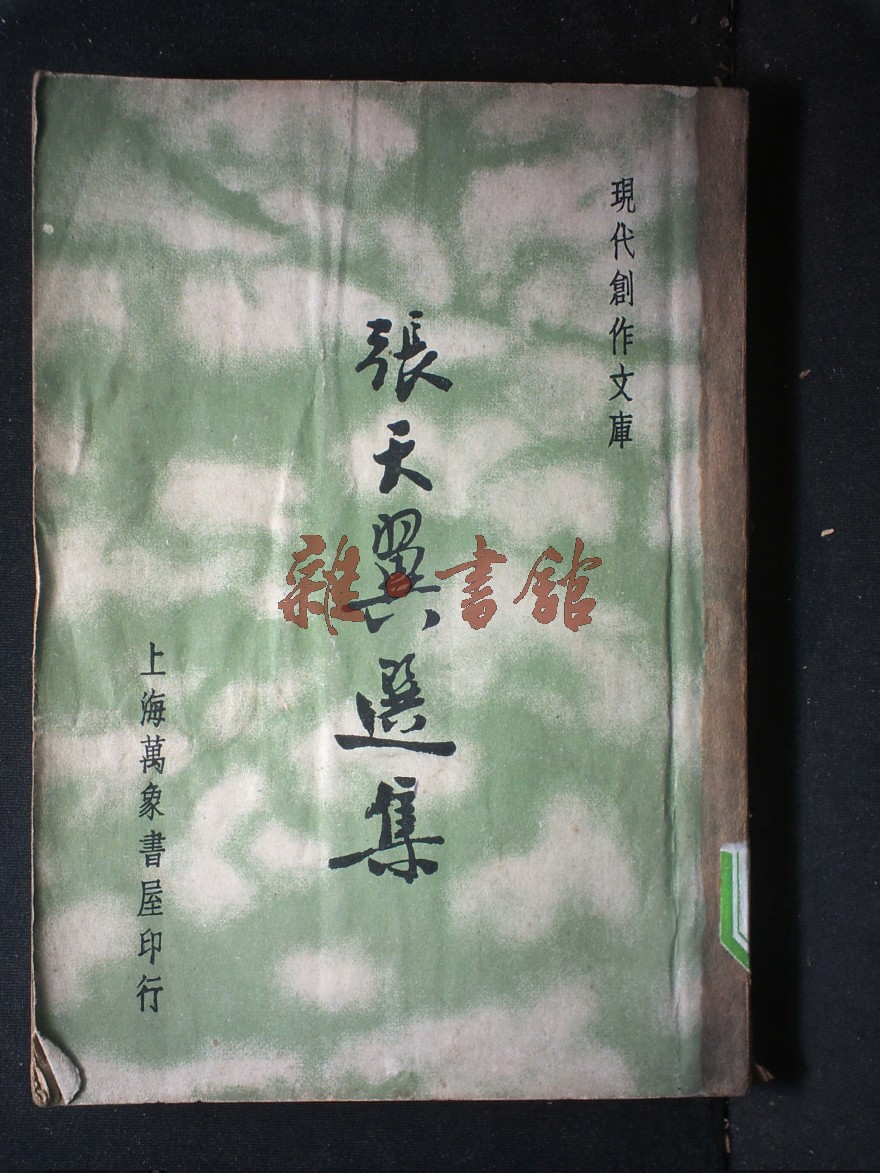 現代創作文庫
張天翼選集
上海萬象書屋印行
雜書館